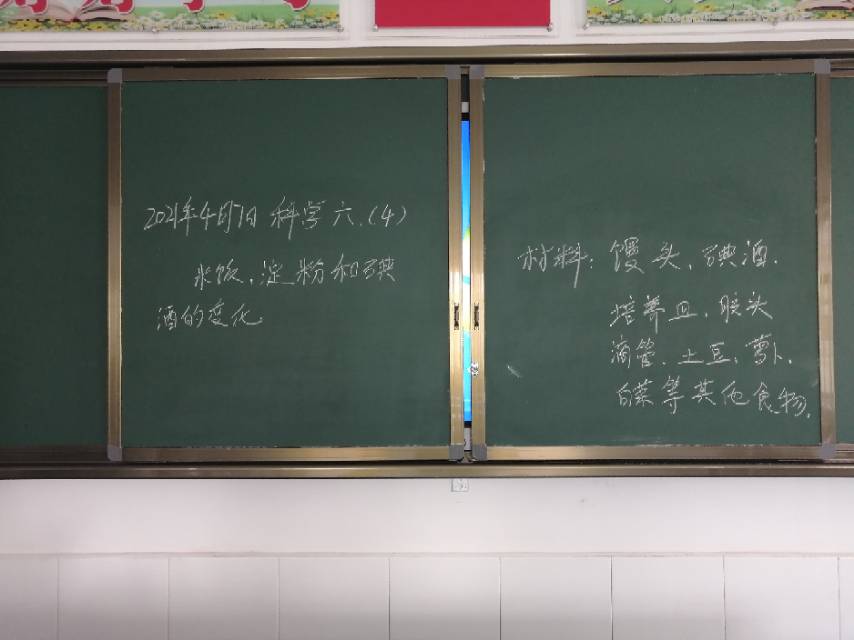 2021年4月7日 科学 六.(4)
米饭、淀粉和碘
酒的变化
材料：馒头、碘酒.
培养皿、胶头
滴管、土豆、萝卜、
白菜等其他食物.